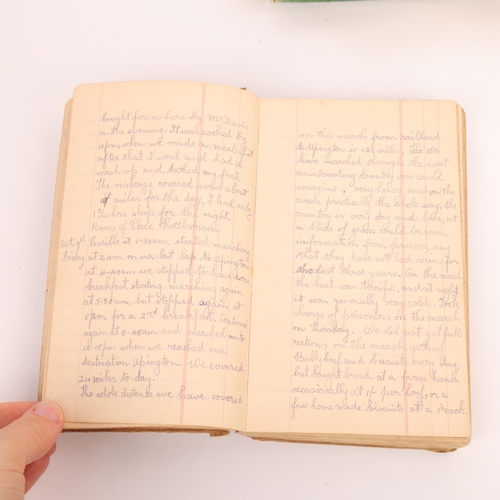 bought for us here by Mr Davis
in the evening. It was cooked by
11pm when we made a meal of it
after that I went and had a
wash up and soaked my feet.
The mileage covered was about
miles for the day, I had only
1 ½ hrs sleep for the night.
Name of Vale
Oct. 9th Reveille at 1-30am started marching
Friday at 2am on our last lap to Upington
at 4-40am we stopped to have some
breakfast, starting marching again
at 5-30am but stopped again at
8am for a 2nd breakfast. Continued
again at 8-40am and marched on to
12-15pm when we reached our
destination Upington. We covered
24 miles to-day.
The whole distance we have covered
on the march from railhead
to Upington is 126 miles. We
have marched through the most
uninteresting country one could
imagine, very heavy sand on the
roads practically the whole way, the
country is very dry and bare, not
a blade of grass could be seen,
information from farmers say
that they have not had rain for
the last three years. On the march
the heat was terrific, and at night
it was generally very cold. Took
charge of prisoners on the march
on Thursday. We did not get full
rations on the march, getting
Bully beef and biscuits every day,
but bought bread at a farm house
occasionally at 1/- per loaf, or a
few home made biscuits at a 1d each.